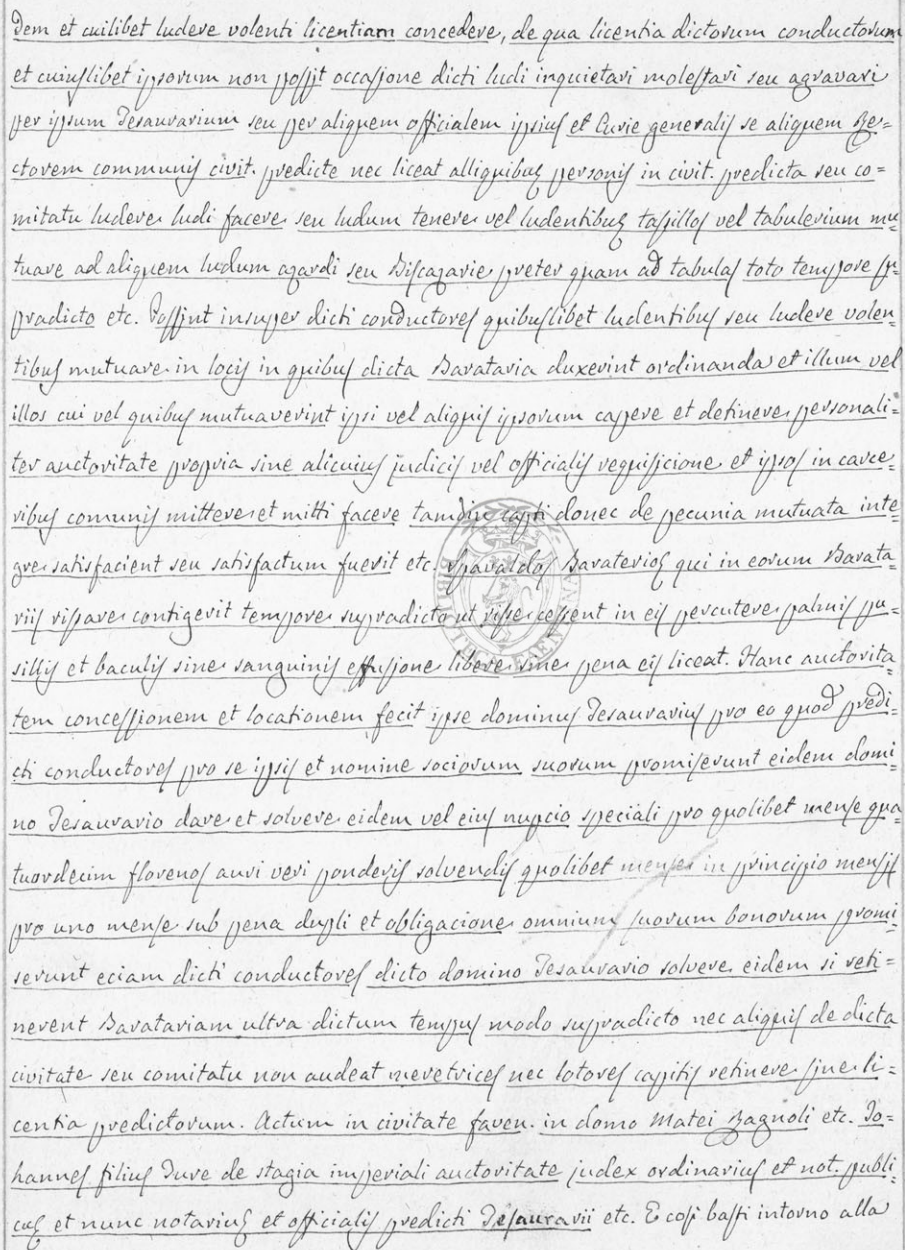 dem et cuilibet ludere volenti licentiam concedere, de qua licentia dictorum conductorum
et cuiuslibet ipsorum non possit occasione dicti ludi inquietari molestari seu agravari
per ipsum Tesaurarium seu per aliquem officialem ipsius et Curie generalis se aliquem Re=
ctorem communis civit. predicte nec liceat alliquibus personis in civit. predicta seu co=
mitatu ludere ludi facere seu ludum tenere vel ludentibus tassillos vel tabulerium mu=
tuare ad aliquem ludum azardi seu Biscazarie preter quam ad tabulas toto tempore su=
pradicto etc. Possint insuper dicti conductores quibuslibet ludentibus seu ludere volen=
tibus mutuare in locis in quibus dicta Barataria duxerint ordinanda et illum vel
illos cui vel quibus mutuaverint ipsi vel aliquis ipsorum capere et detinere personali=
ter auctoritate propria sine alicuius judicis vel officialis requisicione et ipsos in carce=
ribus comunis mittere et mitti facere tamdiu capti donec de pecunia mutuata inte=
gre satisfacient seu satisfactum fuerit etc. Baraterios qui in eorum Barata=
riis rissare contigerit tempore supradicto ut risse cessent in eis percutere palmis pu=
sillis et baculis sine sanguinis effusione libere sine pena eis liceat. Hanc auctorita=
tem concessionem et locationem fecit ipse dominus Tesaurarius pro eo quod predi=
cti conductores pro se ipsis et nomine sociorum suorum promiserunt eidem domi=
no Tesaurario dare et solvere eidem vel eius nupcio speciali pro quolibet mense qua=
tuordecim florenos auri veri ponderis solvendis quolibet mense in principio mensis
pro uno mense sub pena dupli et obligacione omnium suorum bonorum promi=
serunt eciam dicti conductores dicto domino Tesaurario solvere eidem si reti=
nerent Baratariam ultra dictum tempus modo supradicto nec aliquis de dicta
civitate seu comitatu non audeat meretrices nec lotores capitis retinere sine li=
centia predictorum. Actum in civitate faven. in domo Matei Zagnoli etc. Jo=
hannes filius Jure de stagia imperiali auctoritate judex ordinarius et not. publi=
cus et nunc notarius et officialis predicti Tesaurarii etc. E così basti intorno alla